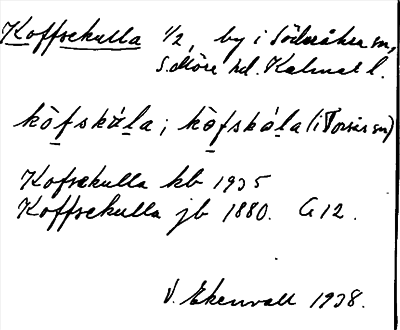 Koffsekulla 1/2, by i Söderåkra sn,
S. Möre hd. Kalmar l.
kòfskúla; kòfskúla (i Torsås sn)
Kofsekulla kb 1935
Koffsekulla jb 1880. G 12.
V. Ekenvall 1938.